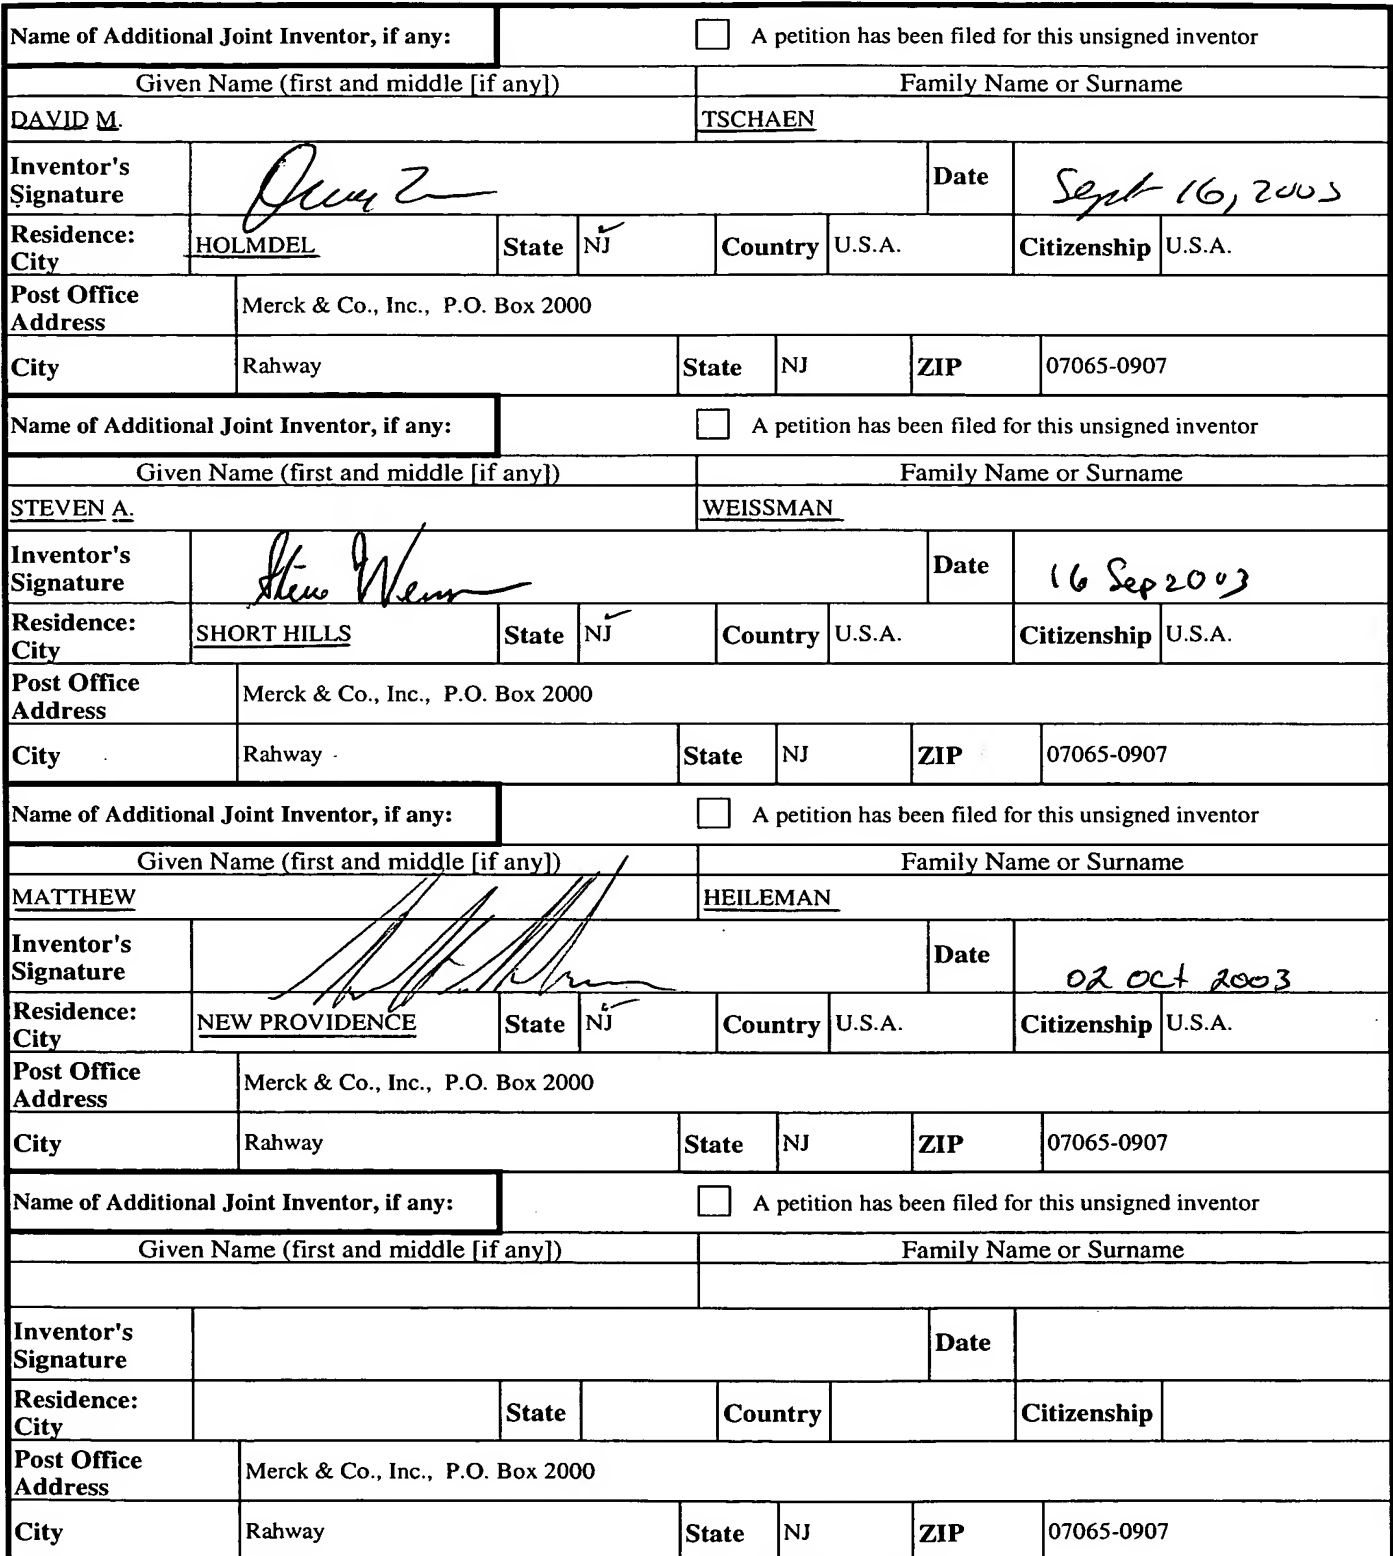 Name of Additional Joint Inventor, if any: A petition has been filed for this unsigned inventor
Given Name (first and middle [if any]) Family Name or Surname
DAVID M. TSCHAEN
Inventor's Signature Date Sept 16, 2003
Residence: City HOLMDEL State NJ Country U.S.A. Citizenship U.S.A.
Post Office Address Merck & Co., Inc., P.O. Box 2000
City Rahway State NJ ZIP 07065-0907
Name of Additional Joint Inventor, if any: A petition has been filed for this unsigned inventor
Given Name (first and middle [if any]) Family Name or Surname
STEVEN A. WEISSMAN
Inventor's Signature Steve Date 16 Sep 2003
Residence: City SHORT HILLS State NJ Country U.S.A. Citizenship U.S.A.
Post Office Address Merck & Co., Inc., P.O. Box 2000
City Rahway State NJ ZIP 07065-0907
Name of Additional Joint Inventor, if any: A petition has been filed for this unsigned inventor
Given Name (first and middle [if any]) Family Name or Surname
MATTHEW HEILEMAN
Inventor's Signature Date 02 Oct 2003
Residence: City NEW PROVIDENCE State NJ Country U.S.A. Citizenship U.S.A.
Post Office Address Merck & Co., Inc., P.O. Box 2000
City Rahway State NJ ZIP 07065-0907
Name of Additional Joint Inventor, if any: A petition has been filed for this unsigned inventor
Given Name (first and middle [if any]) Family Name or Surname
Inventor's Signature Date
Residence: City State Country Citizenship
Post Office Address Merck & Co., Inc., P.O. Box 2000
City Rahway State NJ ZIP 07065-0907